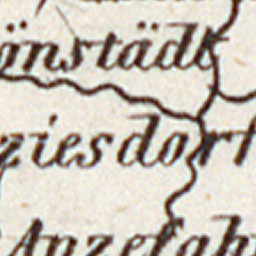 önstädt
ziesdorf
Anzefahr